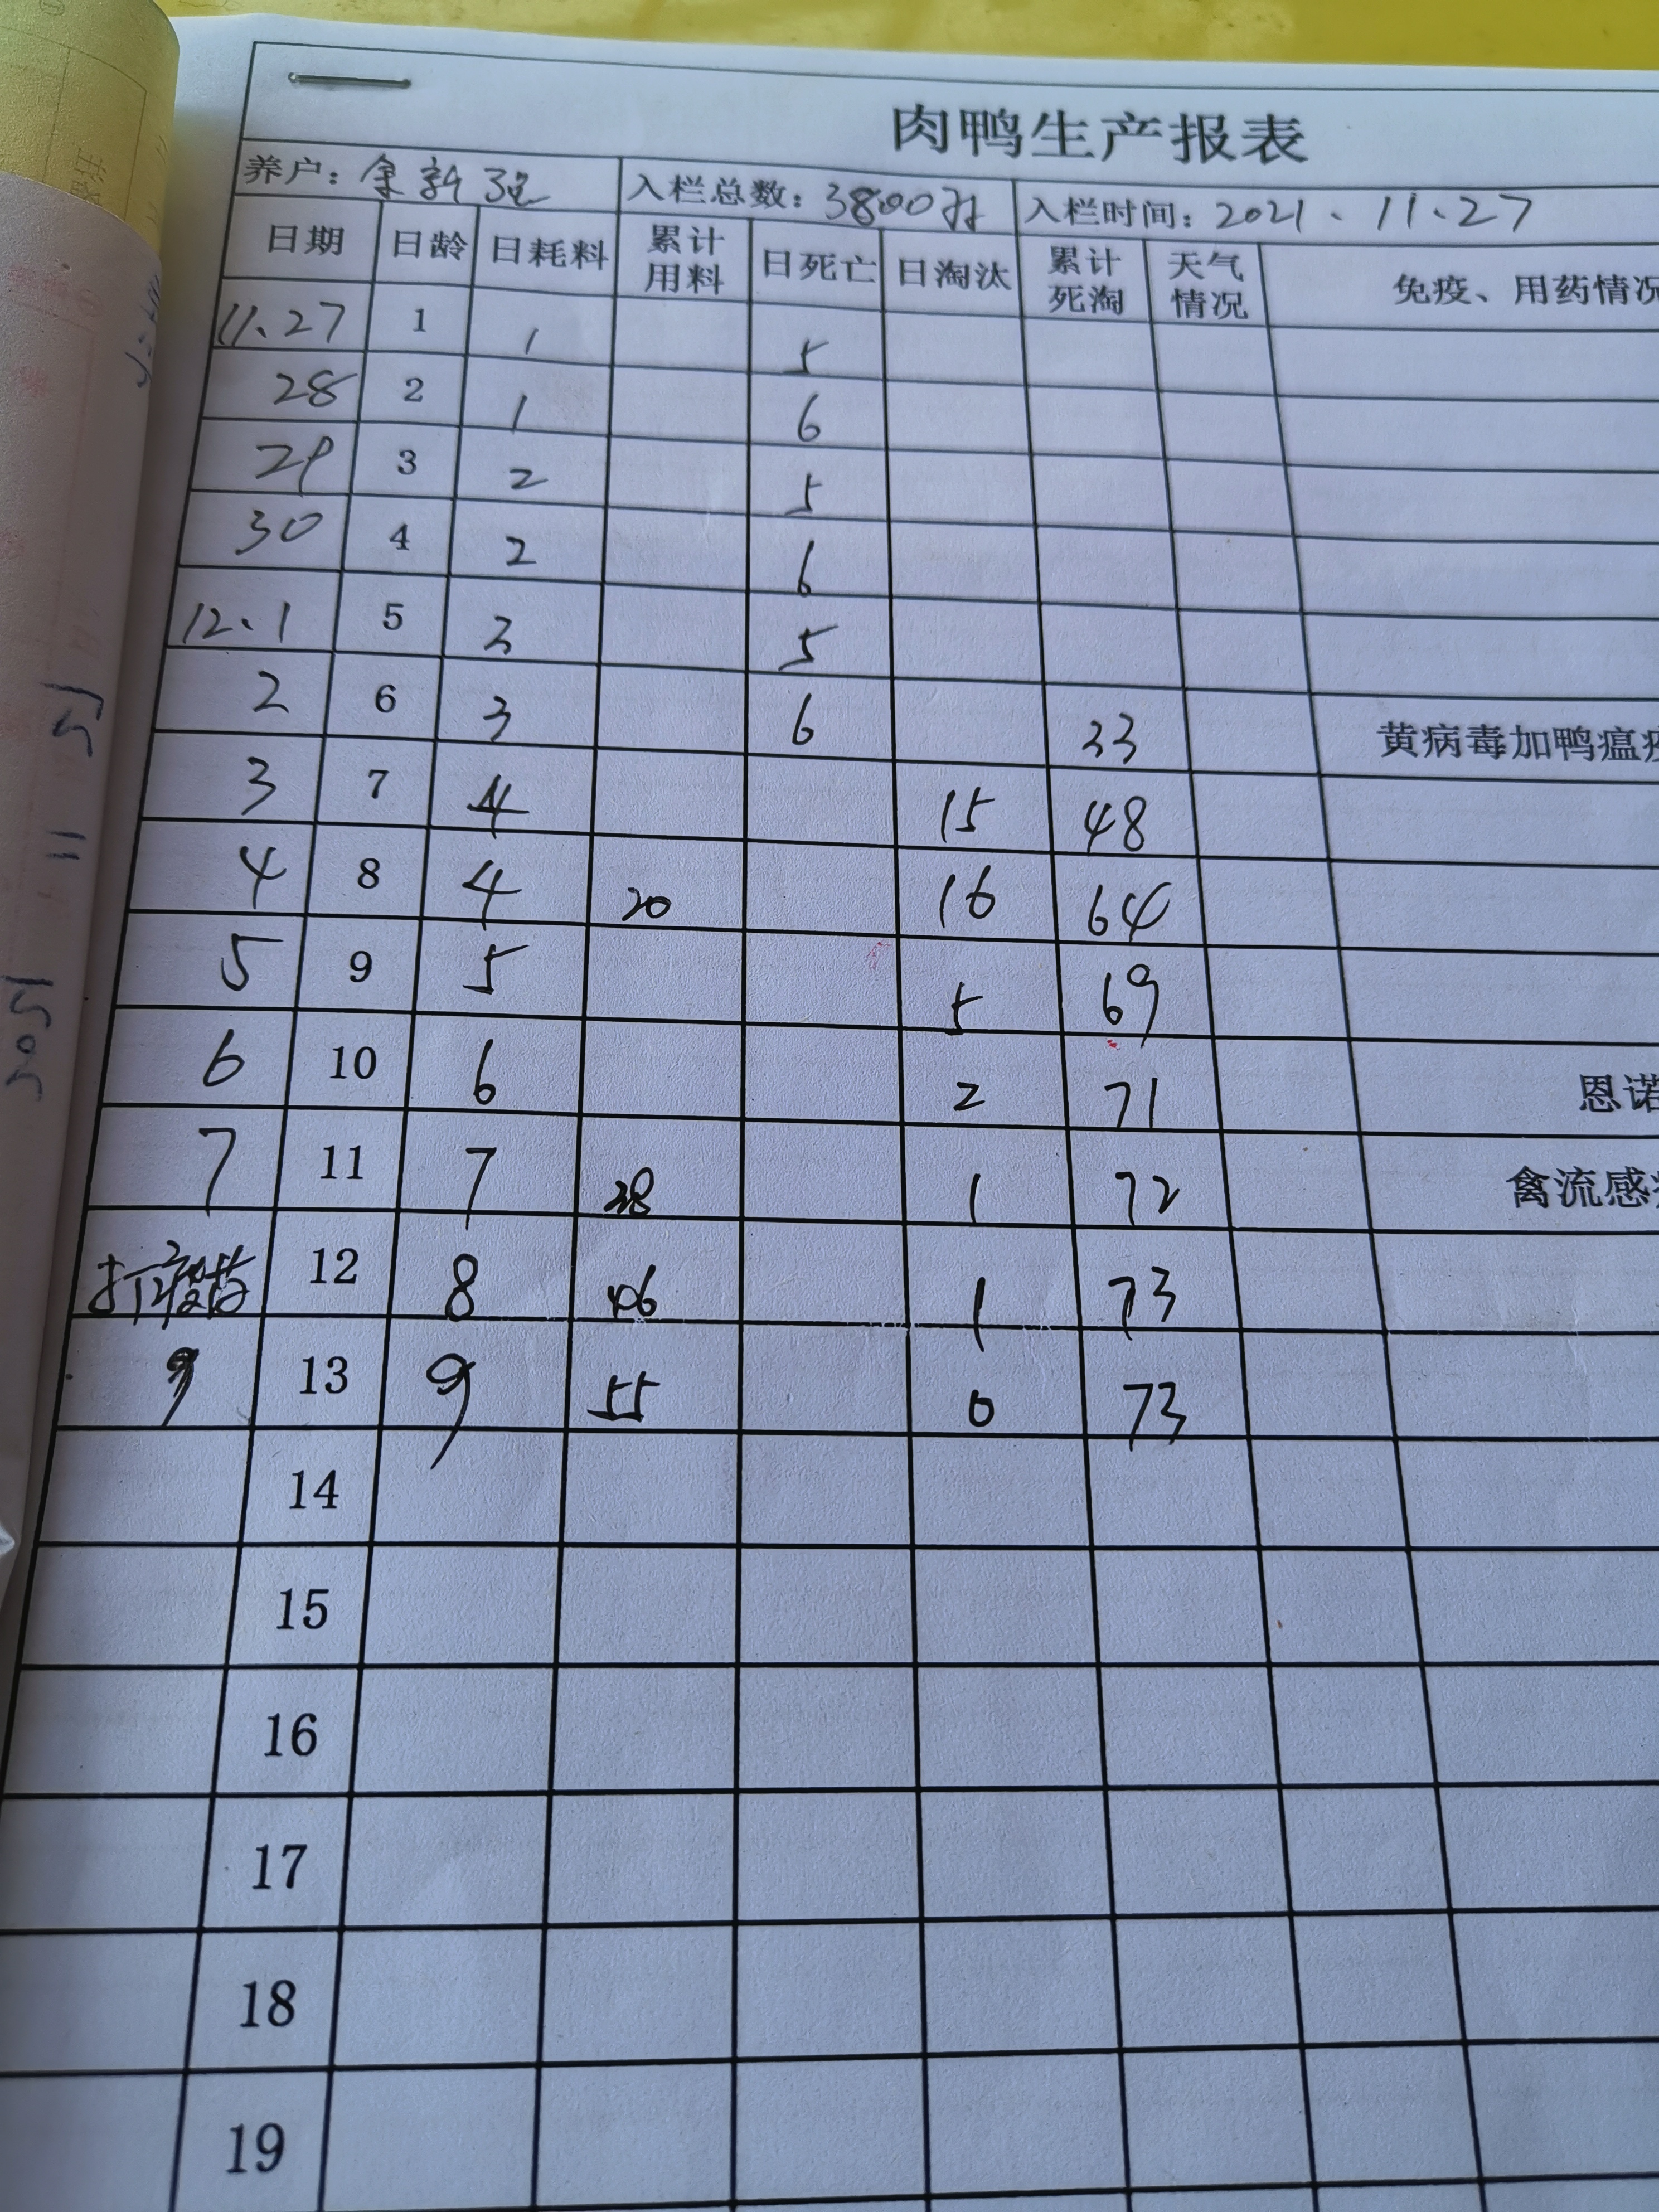 肉鸭生产报表
养户：余新强 入栏总数：3800只 入栏时间：2021、11、27
日期 日龄 日耗料 累计用料 日死亡 日淘汰 累计死淘 天气情况 免疫、用药情况
11、27 1 1 5
28 2 1 6
29 3 2 5
30 4 2 6
12、1 5 3 5
2 6 3 6 33 黄病毒加鸭瘟疫
3 7 4 15 48
4 8 4 20 16 64
5 9 5 5 69
6 10 6 2 71 恩诺
7 11 7 38 1 72 禽流感
打疫苗 12 8 46 1 73
9 13 9 55 0 73
14
15
16
17
18
19